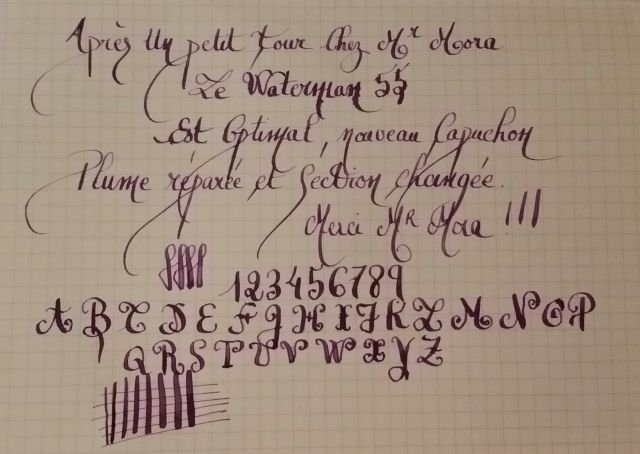 Après Un petit tour Chez Mr Mora
Le Waterman 55
Est Optimal, nouveau Capuchon
Plume réparée et Section changée.
Merci MR Mora !!!
ffff
123456789
A B C D E F G H I J K L M N O P
Q R S T U V W X Y Z